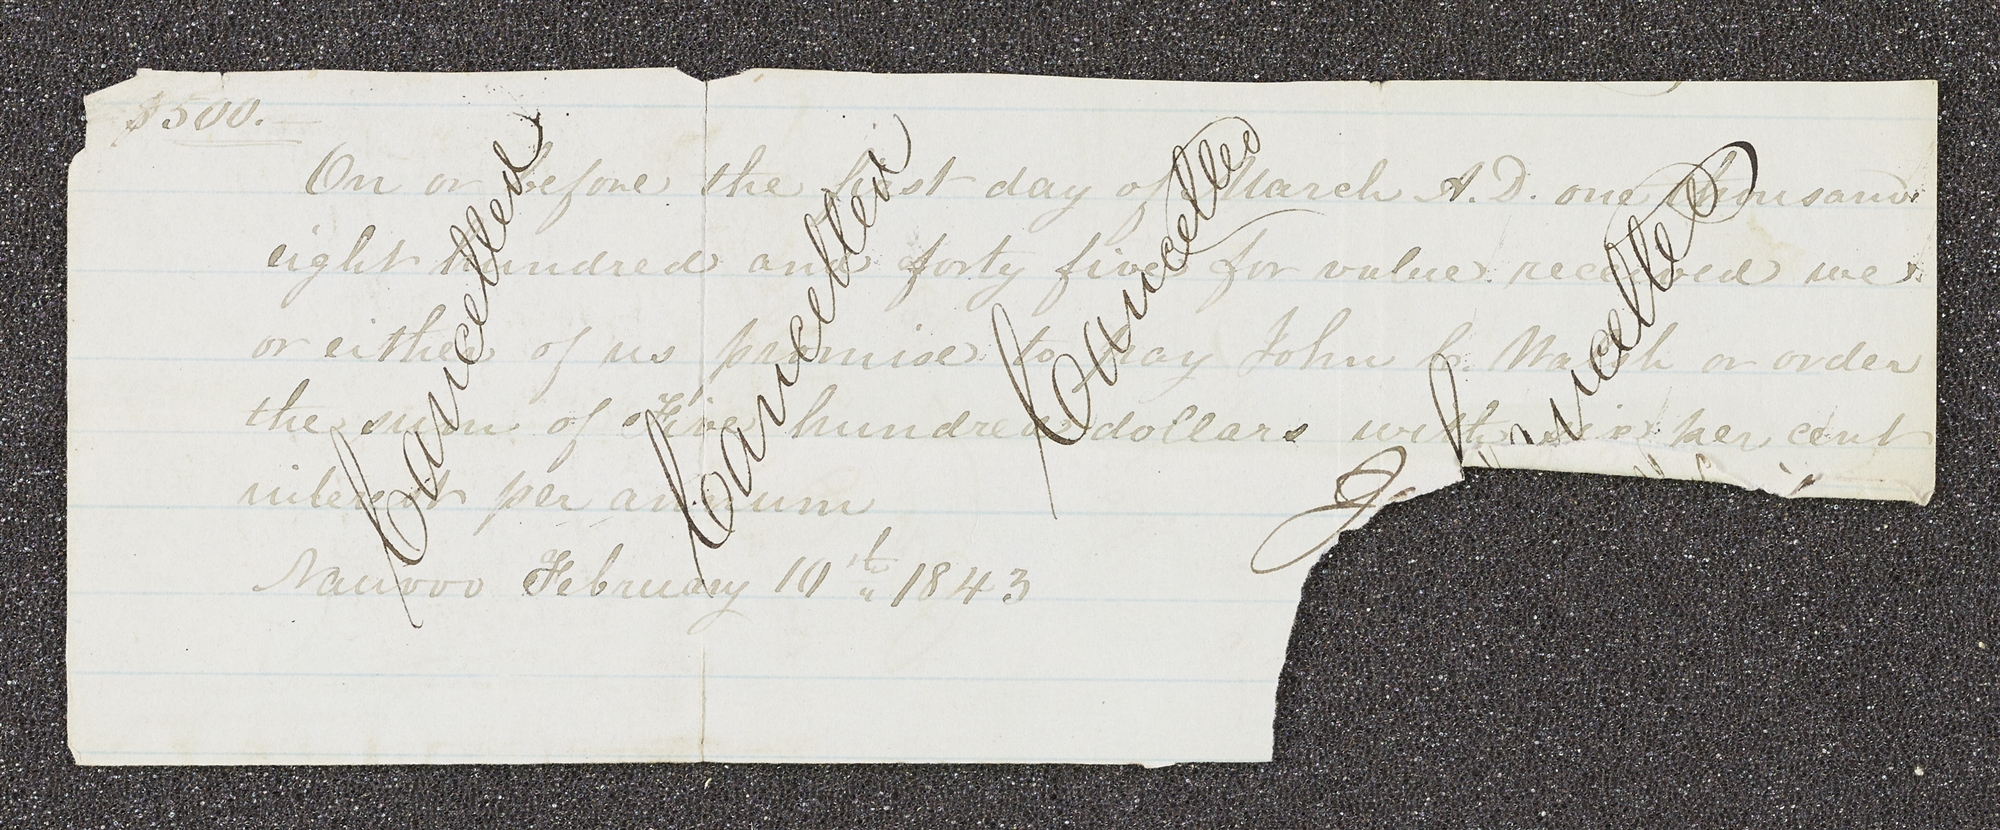 $500.—
On or before the first day of March A.D. one thousand
eight hundred and forty five for value received we
or either of us promise to pay John C. Walsh or order
the sum of Five hundred dollars with six per cent
interest per annum
Nauvoo February 10th 1843
Cancelled
Cancelled
Cancelled
Cancelled